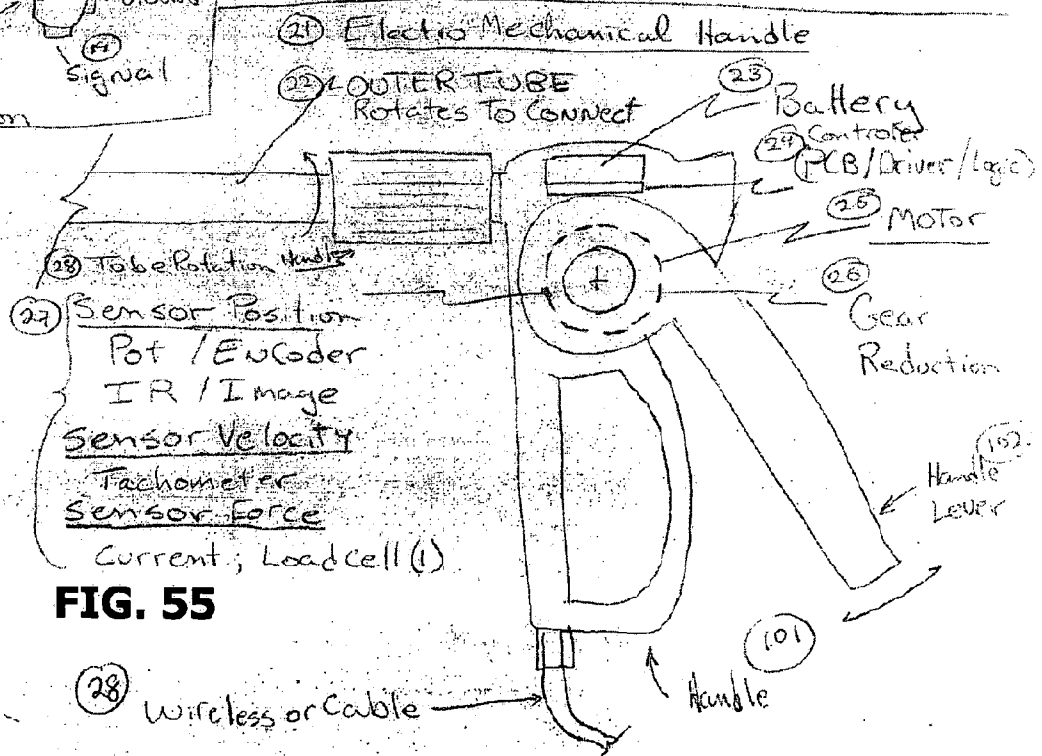 19
Signal
21 Electro Mechanical Handle
22 OUTER TUBE
Rotates To Connect
23 Battery
24 Controler
(PCB/Driver/Logic)
25 MOTOR
26 Gear
Reduction
28 Tube Rotation Handle
27 Sensor Position
Pot / Encoder
IR / Image
Sensor Velocity
Tachometer
Sensor Force
Current; Load cell (1)
102
Handle
Lever
FIG. 55
101
Handle
28 Wireless or Cable